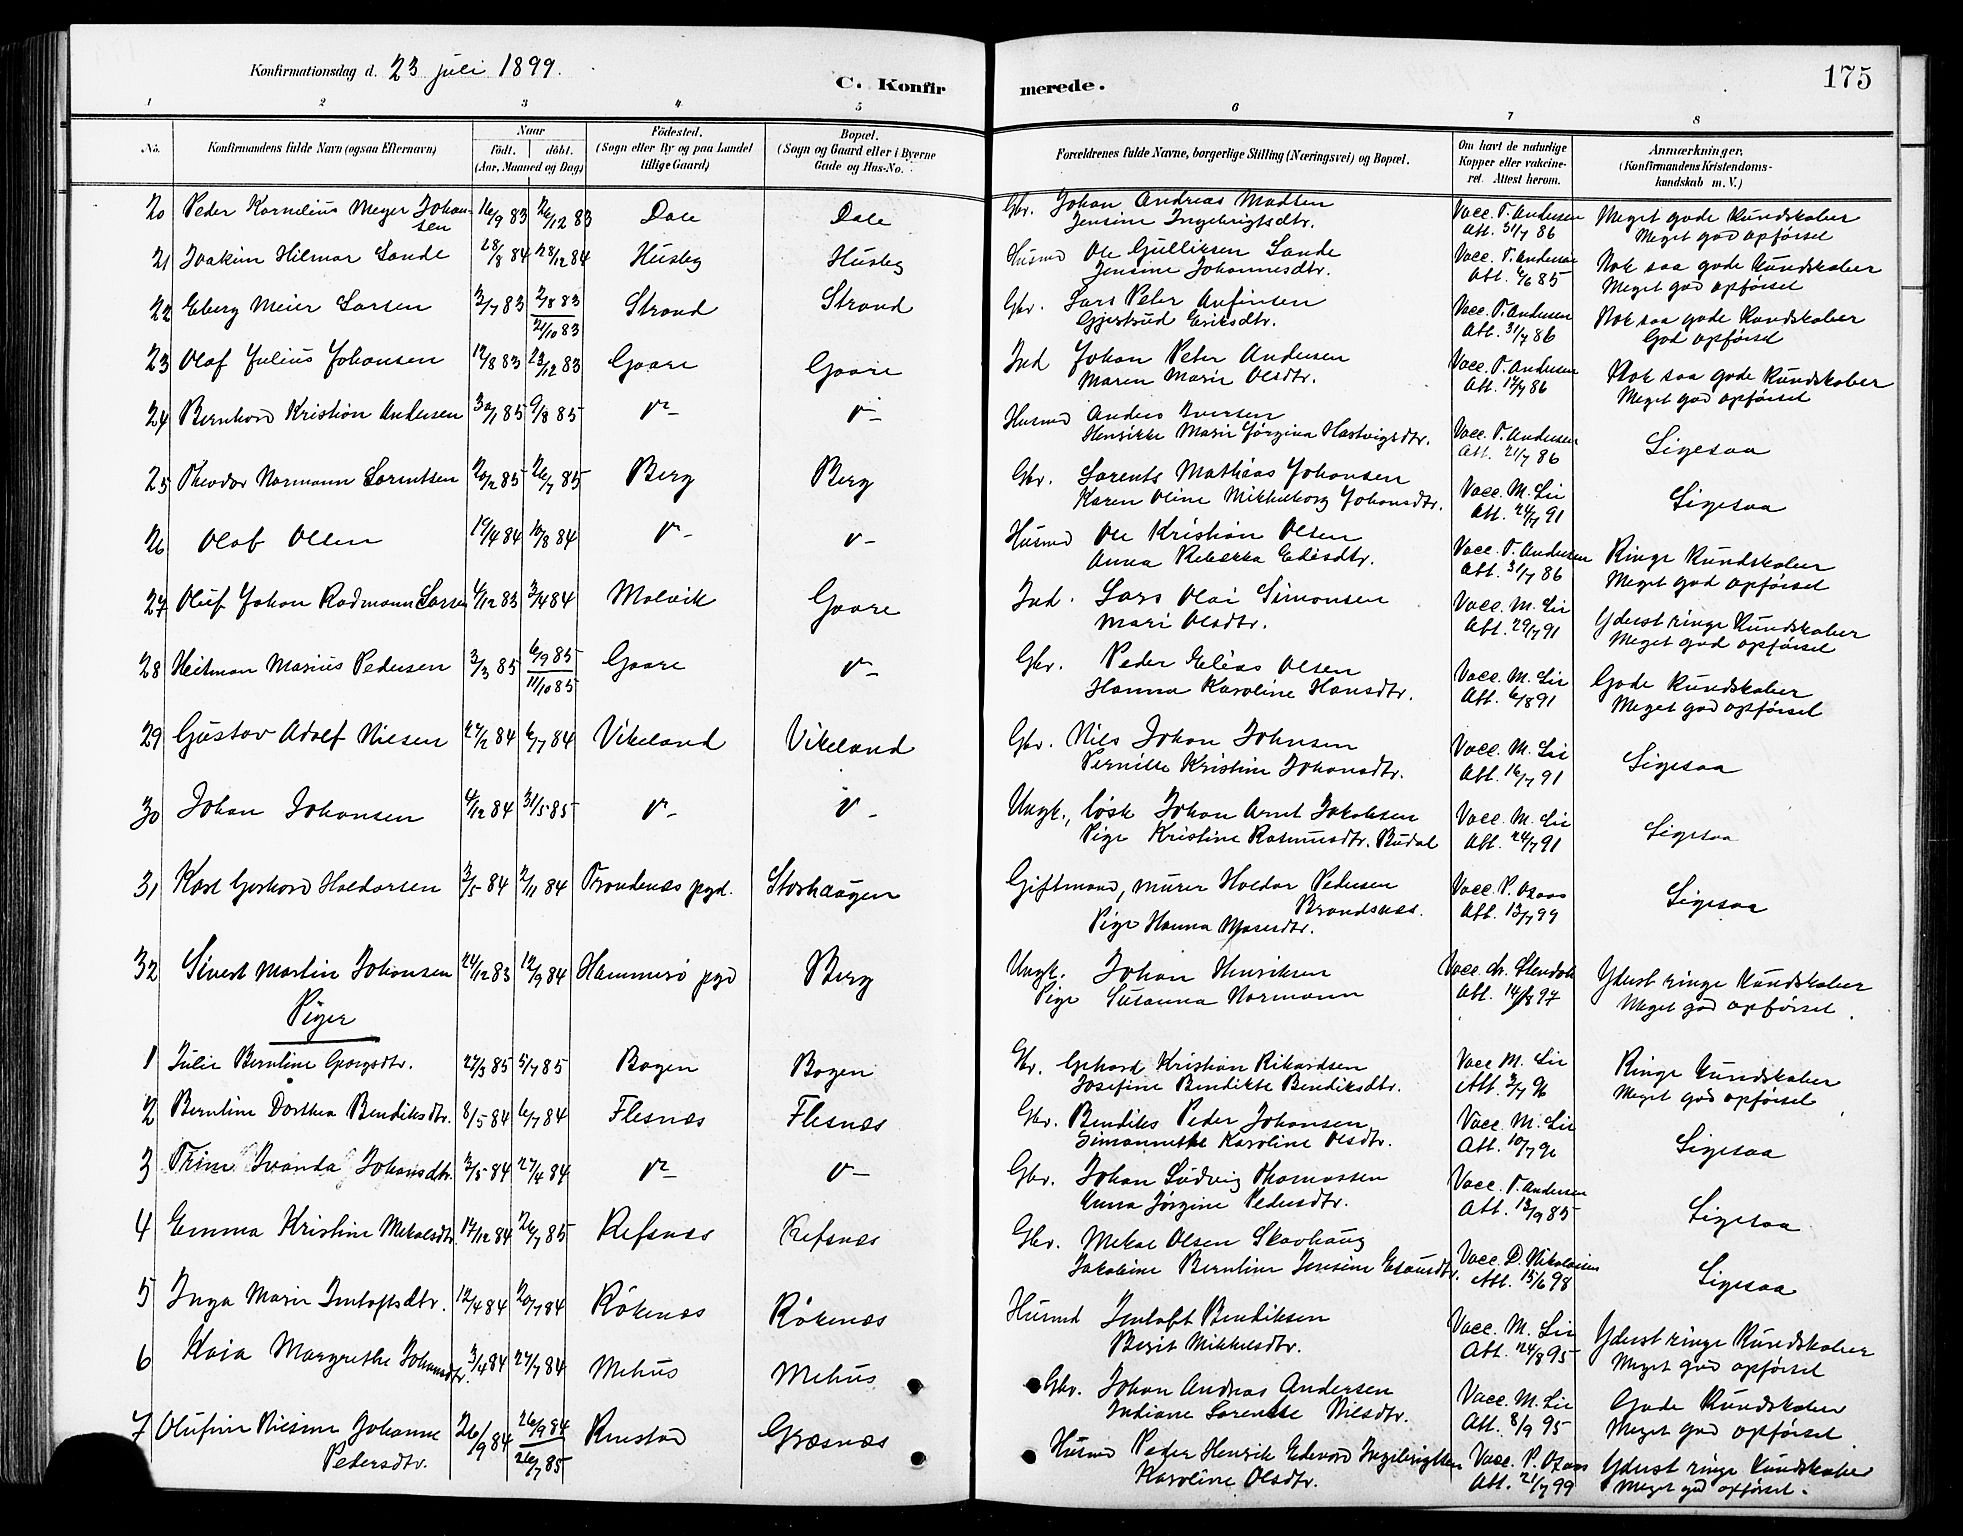 Konfirmationsdag d. 23 juli 1899.
C. Konfirmerede.
175
1 2 3 4 5 6 7 8
No.
Konfirmandens fulde Navn (ogsaa Efternavn)
Naar
födt. döbt.
(Aar, Maaned og Dag)
Födested.
(Sogn eller By og paa Landet
tillige Gaard)
Bopæl.
(Sogn og Gaard eller i Byerne
Gade og Hus-No.)
Forældrenes fulde Navne, borgerlige Stilling (Næringsvei) og Bopæl.
Om havt de naturlige
Kopper eller vaccine-
ret. Attest herom.
Anmærkninger.
(Konfirmandens Kristendoms-
kundskab m. V.)
20 Peder Kornelius Meyer Johan- 16/9 83 26/12 83 Dale Dale Gbr. Johan Andreas Madsen Vacc. T. Andersen Meget gode Kundskaber
sen Jensine Ingebrigtsdtr. Att. 31/7 86 Meget god opförsel
21 Joakim Hilmar Sande 28/8 84 28/12 84 Husby Husby Husmd Ole Gulliksen Sande Vacc. T. Andersen Nok saa gode Kundskaber
Jensine Johannesdtr. Att. 6/6 85 Meget god opförsel
22 Eberg Meier Larsen 2/7 83 2/8 83 Strand Strand Gbr. Lars Peter Anfinsen Vacc. T. Andersen Nok saa gode Kundskaber
21/10 83 Gjertrud Eriksdtr. Att. 31/7 86 God opförsel
23 Olaf Julius Johansen 12/8 83 23/12 83 Gaare Gaare Ind Johan Peter Andersen Vacc. T. Andersen Nok saa gode Kundskaber
Maren Marie Olsdtr. Att. 17/7 86 Meget god opförsel
24 Bernhard Kristian Andersen 30/1 85 9/8 85 v- v- Husmd Anders Iversen Vacc. T. Andersen Ligesaa
Henrikke Marie Jörgina Hartvigsdtr. Att. 21/7 86
25 Theodor Normann Lorentsen 20/2 85 26/7 85 Berg Berg Gbr. Lorents Mathias Johansen Vacc. M. Lie Ligesaa
Karen Oline Mikkelborg Johansdtr. Att. 24/7 91
26 Olaf Olsen 19/4 84 10/8 84 v- v- Husmd Ole Kristian Olsen Vacc. T. Andersen Ringe Kundskaber
Anna Rebekka Edisdtr. Att. 31/7 86 Meget god opförsel
27 Oluf Johan Rodmann Larsen 6/12 83 3/4 84 Malvik Gaare Ind. Lars Olai Simonsen Vacc. M. Lie Yderst ringe Kundskaber
Mari Olsdtr. Att. 29/7 91 Meget god opförsel
28 Heitman Marius Pedersen 3/3 85 6/9 85 Gaare v- Gbr. Peder Elias Olsen Vacc. M. Lie Gode Kundskaber
11/10 85 Hanna Karoline Hansdtr. Att. 6/8 91 Meget god opförsel
29 Gustav Adolf Nilsen 27/2 84 6/7 84 Vikeland Vikeland Gbr. Nils Johan Johnsen Vacc. M. Lie Ligesaa
Pernille Kristine Johansdtr. Att. 16/7 91
30 Johan Johansen 4/12 84 31/5 85 v- v- Ungk., lösk Johan Arnt Jakobsen Vacc. M. Lie Ligesaa
Pige Kristine Rasmusdtr. Budal Att. 24/7 91
31 Karl Gerhard Haldorsen 3/5 84 2/11 84 Trondenæs pgd. Storhaugen Giftmand, murer Haldor Pedersen Vacc. P. Osaas Ligesaa
Brandsnes. Pige Hanna Mosesdtr. Att. 13/7 99
32 Sivert Martin Johansen 24/12 83 12/9 84 Hammerö pgd Berg Ungk. Johan Henriksen Vacc. Yderst ringe Kundskaber
Pige Susanna Normann Att. 14/8 97 Meget god opförsel.
Piger
1 Julie Berntine Georgsdtr. 27/3 85 5/7 85 Bogen Bogen Gbr. Gerhard Kristian Rikardsen Vacc M. Lie Ringe Kundskaber
Josefine Bendikte Bendiksdtr. Att. 3/7 96 Meget god opförsel
2 Berntine Dorthea Bendiksdtr. 8/5 84 6/7 84 Flesnæs Flesnæs Gbr. Bendiks Peder Johansen Vacc. M. Lie Ligesaa
Simonnethe Karoline Olsdtr. Att. 10/7 96
3 Trine Ivanda Johansdtr. 2/5 84 27/4 84 v- v- Gbr. Johan Ludvig Thomassen Vacc. T. Andersen Ligesaa
Anna Jörgine Pedersdtr. Att. 13/9 85
4 Emma Kristine Mekalsdtr. 17/12 84 26/7 85 Refsnæs Refsnæs Gbr. Mekal Olsen Skavhaug Vacc. D. Nikolaisen Ligesaa
Jakobine Berntine Jensine Esausdtr. Att. 15/6 98
5 Inga Marie Imtoftsdtr. 12/4 84 20/7 84 Rökenæs Rökenæs Husmd Imtoft Bendiksen Vacc. M. Lie Yderst ringe Kundskaber
Berit Mikkelsdtr. Att. 24/8 95 Meget god opförsel
6 Kaia Margrethe Johansdtr. 3/4 84 27/7 84 Mehus Mehus Gbr. Johan Andreas Andersen Vacc. M. Lie Gode Kundskaber
Indiane Lorentse Nilsdtr. Att. 8/9 95 Meget god opförsel
7 Olufine Nilsine Johanne 26/9 84 26/9 84 Rustad Græsnæs Husmd Peder Henrik Edevard Ingebrigtsen Vacc. P. Osaas Yderst ringe Kundskaber
Pedersdtr. 26/7 85 Karoline Olsdtr. Att. 21/7 99 Meget god opförsel.